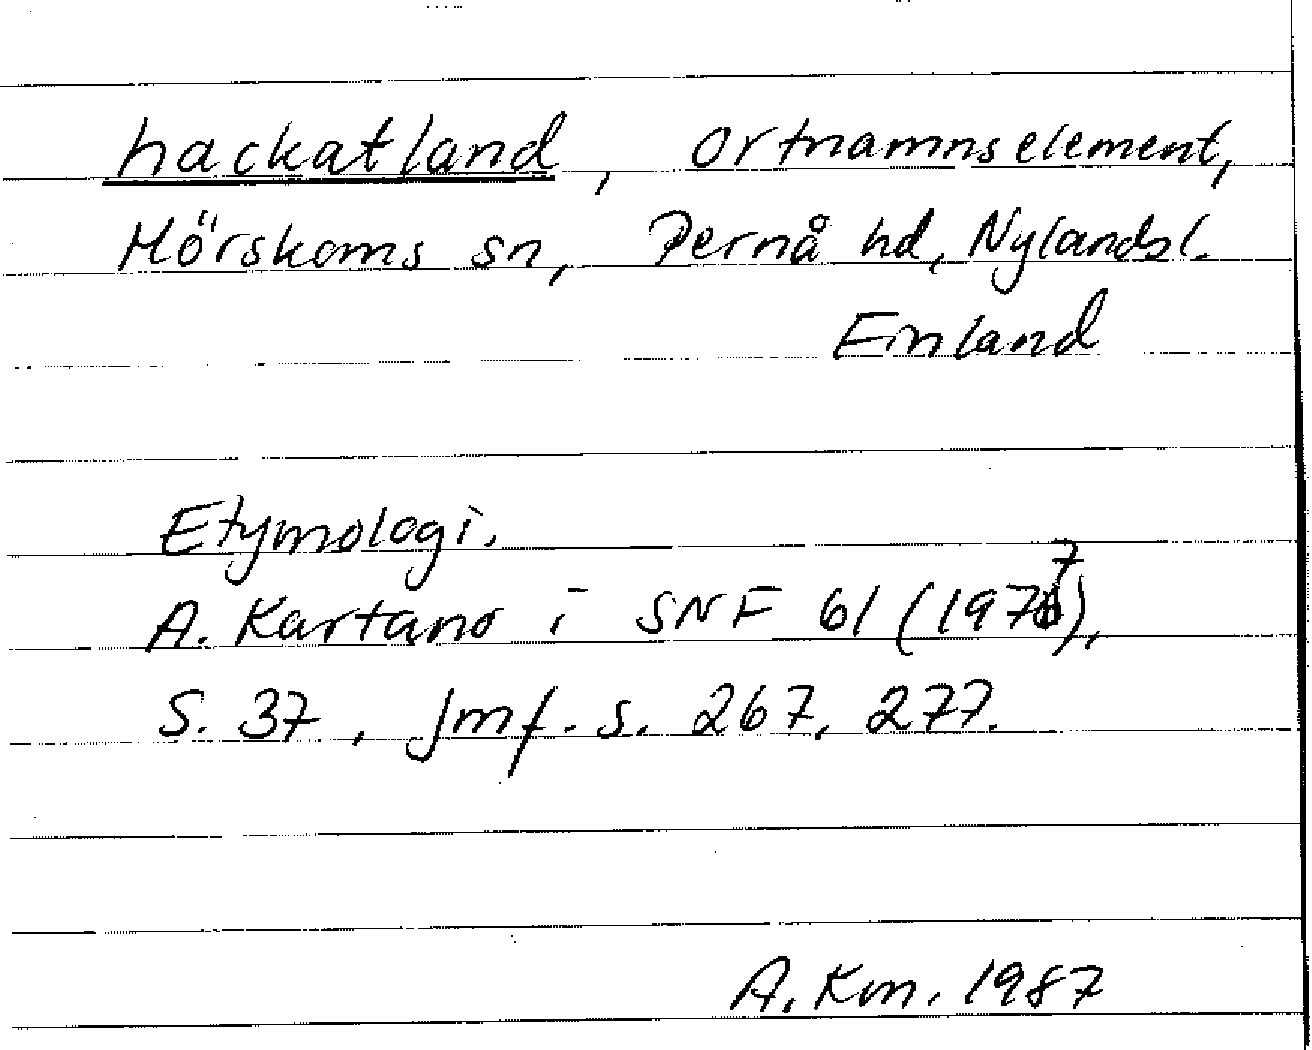 hackatland, ortnamnselement,
Mörskoms sn, Pernå hd, Nylandsl.
Finland
Etymologi.
A. Kartano i SNF 61 (1977),
S. 37, jmf. s. 267, 277.
A. Km. 1987